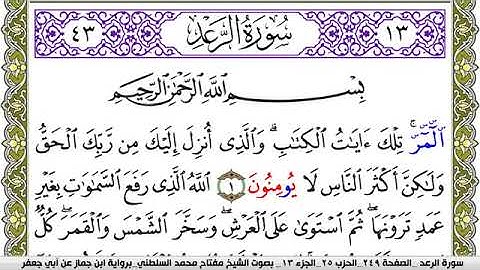 ٤٣ سُورَةُ الرَّعْدِ ١٣
بِسْمِ اللَّهِ الرَّحْمَٰنِ الرَّحِيمِ
الٓمٓرۚ تِلْكَ ءَايَٰتُ الْكِتَٰبِۗ وَالَّذِي أُنزِلَ إِلَيْكَ مِن رَّبِّكَ الْحَقُّ
وَلَٰكِنَّ أَكْثَرَ النَّاسِ لَا يُومِنُونَ ١ اللَّهُ الَّذِي رَفَعَ السَّمَٰوَٰتِ بِغَيْرِ
عَمَدٍ تَرَوْنَهَاۖ ثُمَّ اسْتَوَىٰ عَلَى الْعَرْشِۖ وَسَخَّرَ الشَّمْسَ وَالْقَمَرَۖ كُلٌّ
سورة الرعد_ الصفحة ٢٤٩_ الحزب ٢٥_ الجزء ١٣_ بصوت الشيخ مفتاح محمد السلطني_ برواية ابن جماز عن أبي جعفر